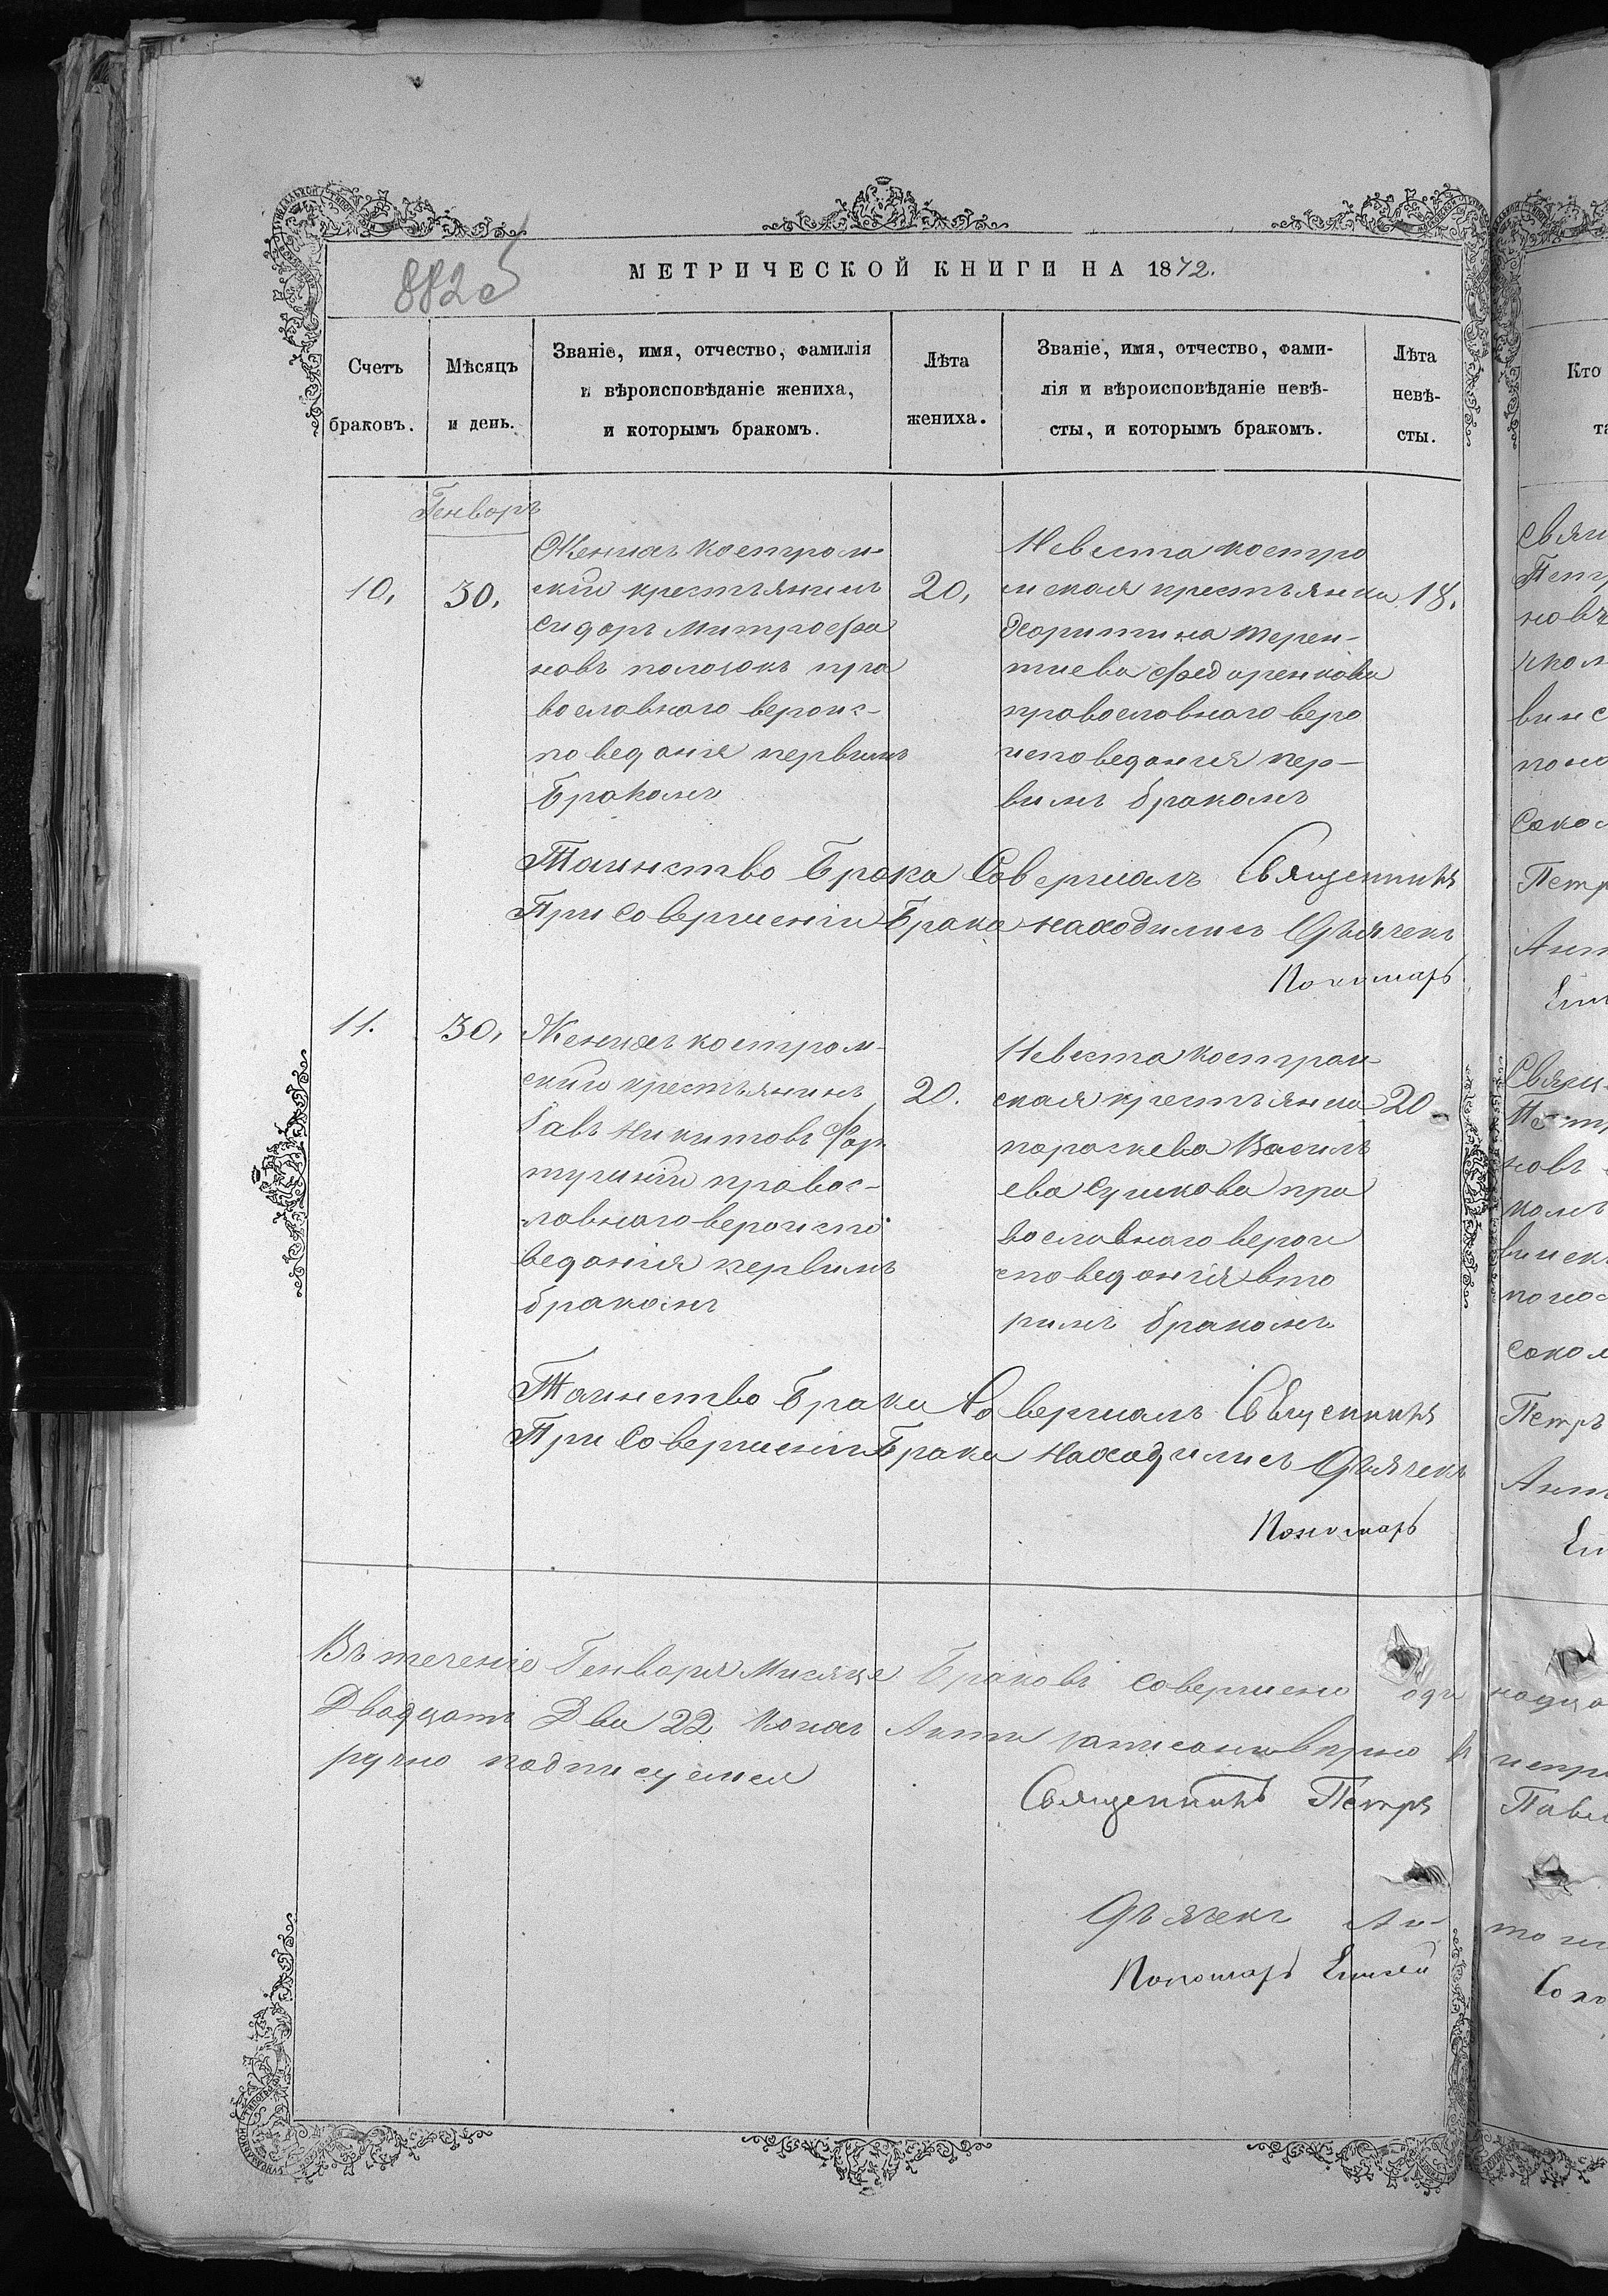 МЕТРИЧЕСКОЙ КНИГИ НА 1872.
882 об
Счетъ браковъ.
Мѣсяцъ и день.
Званіе, имя, отчество, фамилія
и вѣроисповѣданіе жениха,
и которымъ бракомъ.
Лѣта жениха.
Званіе, имя, отчество, фами-
лія и вѣроисповѣданіе невѣ-
сты, и которымъ бракомъ.
Лѣта невѣ-
сты.
Кто
Генворъ
10,
30.
Женихъ костром-
ский крестьянинъ
сидоръ Митрофа
новъ полозокъ пра
вославнаго вероис-
поведанія первимъ
Бракомъ
20,
Невеста костро
мская крестьянка
Харитина терен-
тиева Федоренкова
православнаго веро
исповеданія пер-
вимъ бракомъ
18.
Таинство Брака Совершалъ Священникъ
При Совершеніи Брака находились Дьячекъ
Пономарь
11.
30,
Женихъ костром-
ский крестьянинъ
Савъ Никитовъ
правос-
лавнаго вероиспо
веданія первимъ
бракомъ
20.
Невеста костром-
ская крестьянка
параскева Василь
ева Сушкова пра
вославнаго верои
споведанія вто
римъ бракомъ
20
Таинство Брака Совершалъ Священникъ
При Совершеніи Брака Находились Дьячекъ
Пономарь
Въ теченіе Генваря Мисяца Браковъ совершено оди
Двадцать Два 22 Акти записани верно и
ручно подписуемся
Священникъ Петръ
Дьячекъ Ан-
Пономарь Елисей